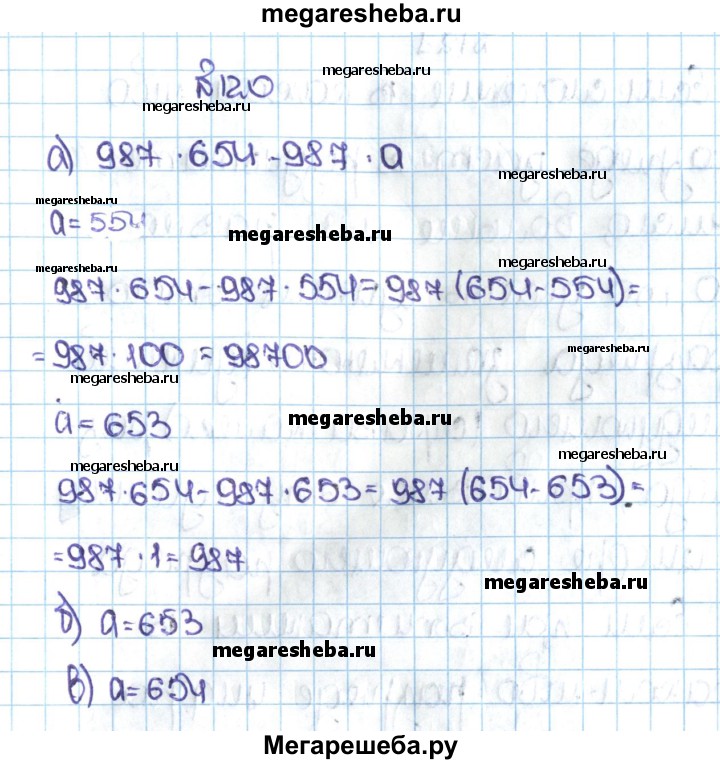 megaresheba.ru
№120
megaresheba.ru
megaresheba.ru
а) 987 · 654 - 987 · a
megaresheba.ru
megaresheba.ru
a = 554
megaresheba.ru
megaresheba.ru
megaresheba.ru
987 · 654 - 987 · 554 = 987 (654 - 554) =
= 987 · 100 = 98700
megaresheba.ru
megaresheba.ru
a = 653
megaresheba.ru
megaresheba.ru
megaresheba.ru
987 · 654 - 987 · 653 = 987 (654 - 653) =
= 987 · 1 = 987
megaresheba.ru
б) a = 653
megaresheba.ru
в) a = 654
Мегарешеба.ру